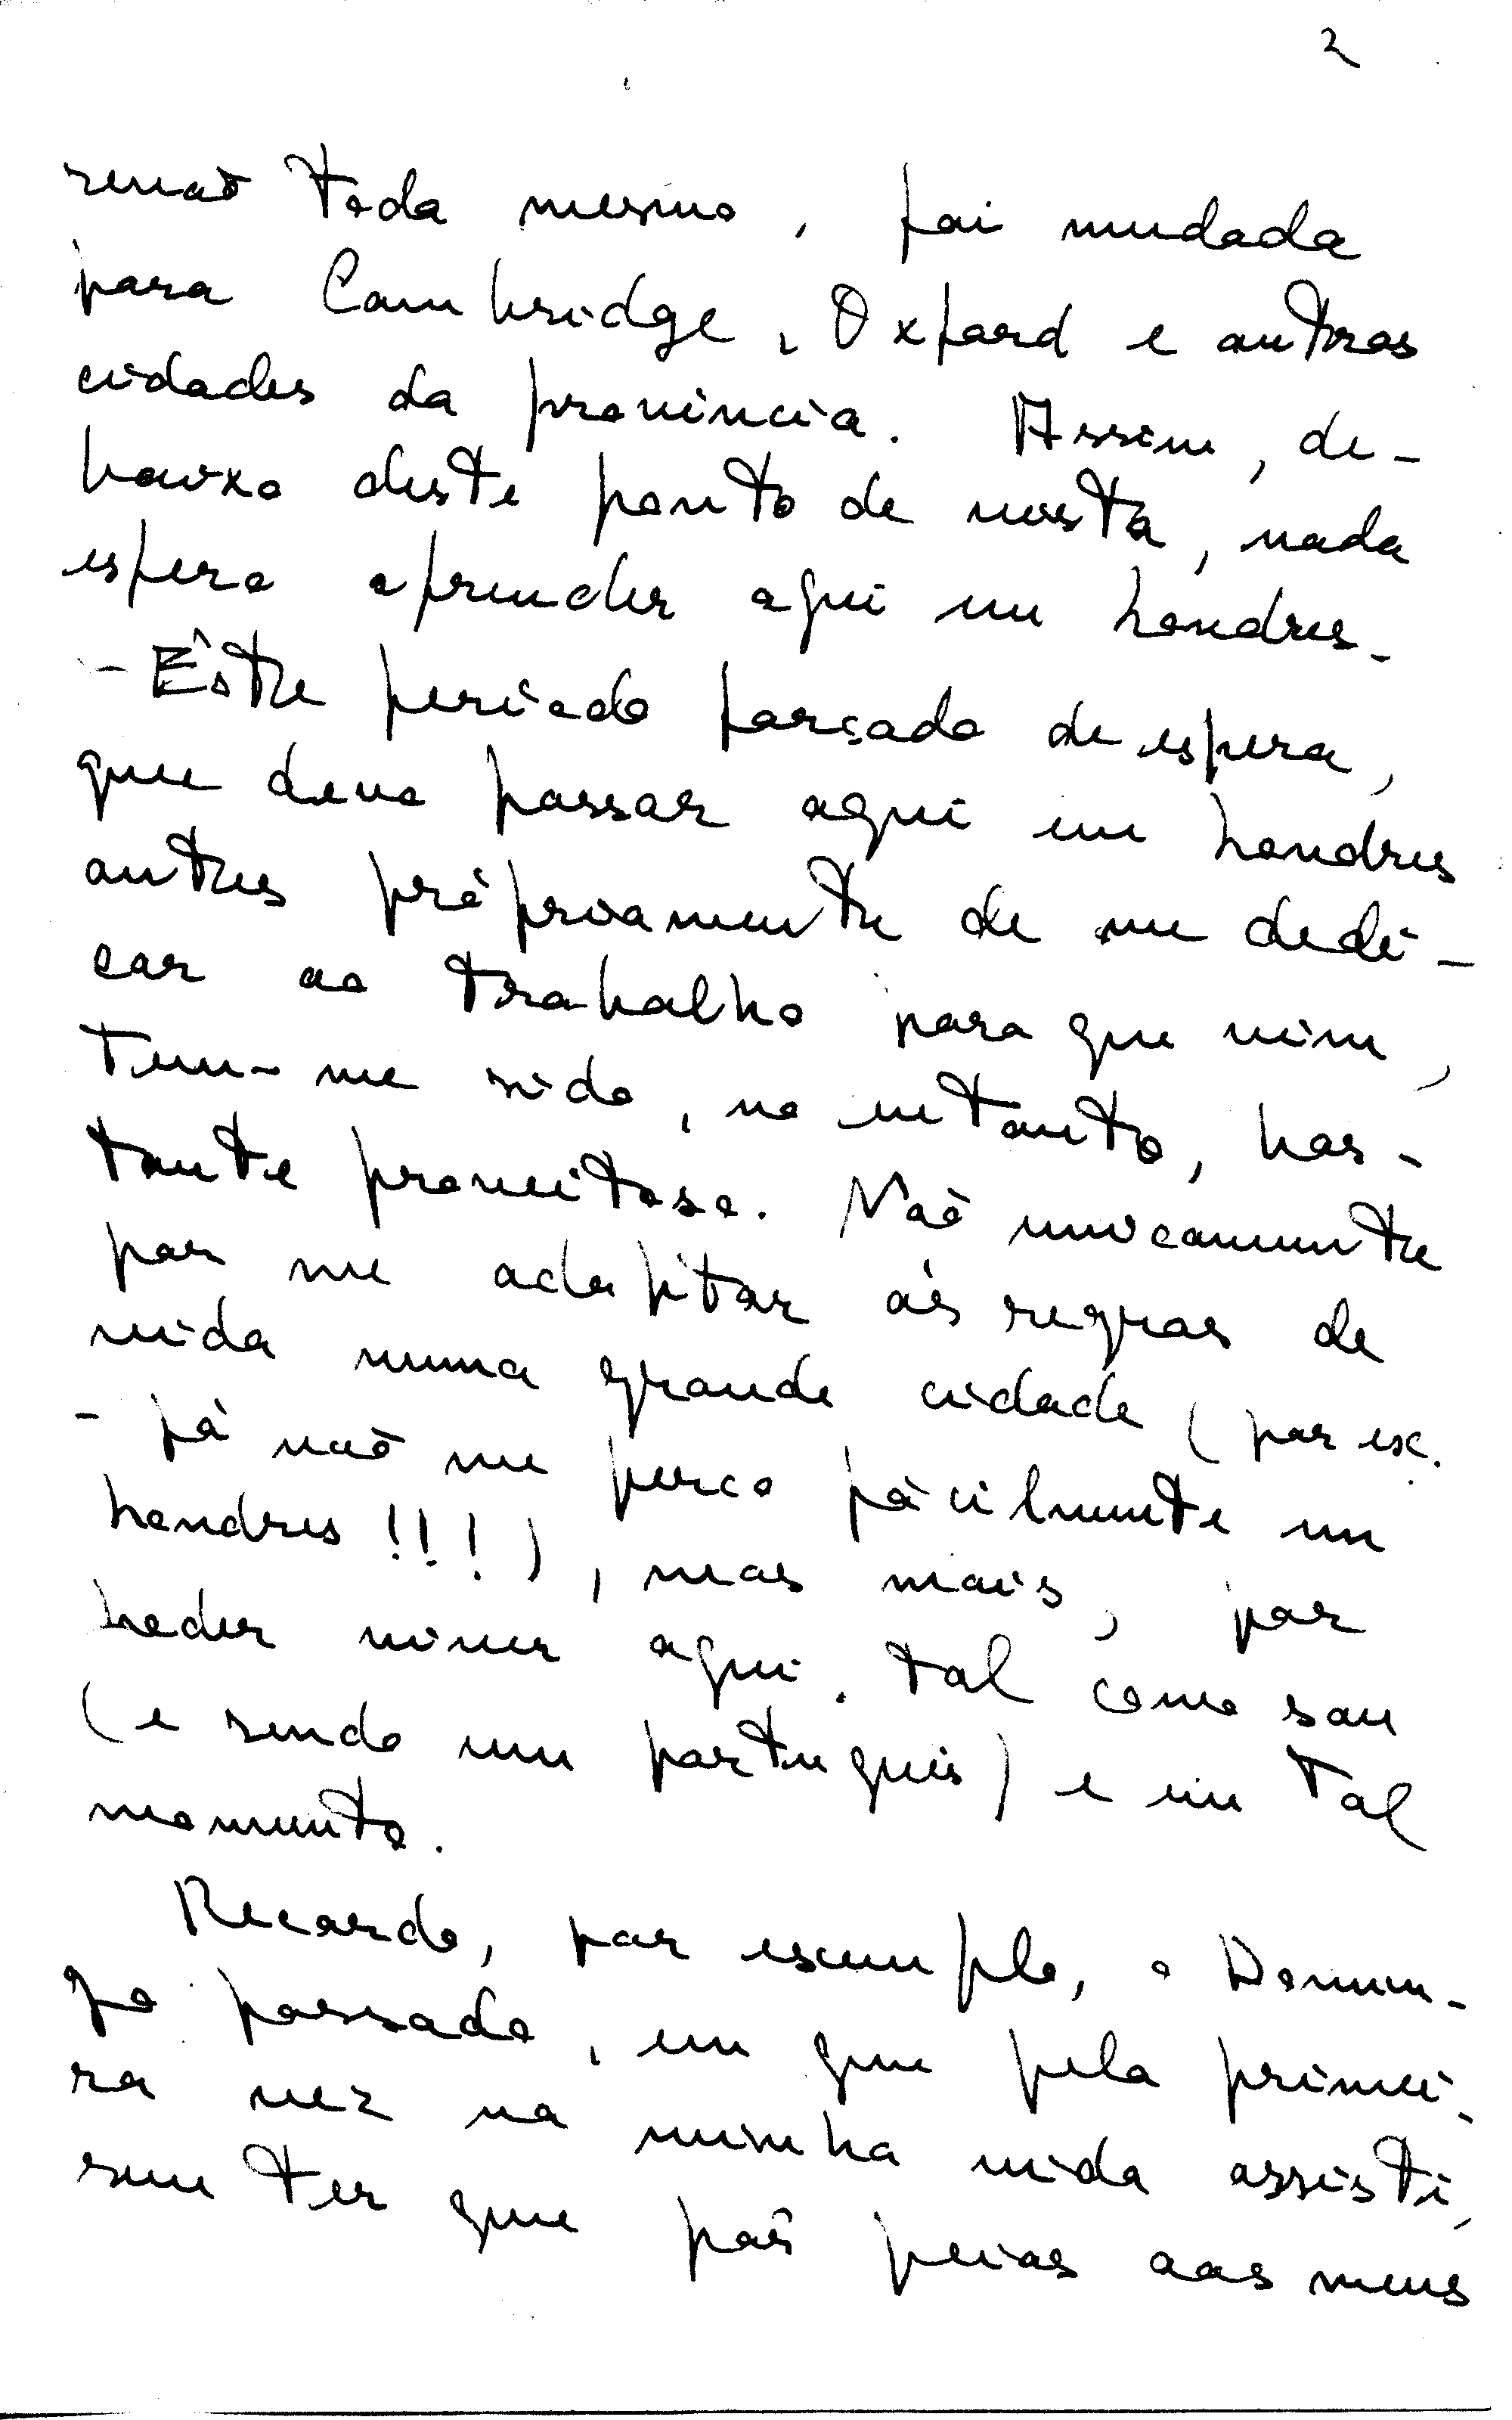 2
senão toda mesmo, foi mudada
para Cambridge, Oxford e outras
cidades da província. Assim, de-
baixo deste ponto de vista, nada
espero aprender aqui em Londres.
- Êste período forçado de espera,
que devo passar aqui em Londres
antes pròpriamente de me dedi-
car ao trabalho para que vim,
tem-me sido, no entanto, bas-
tante proveitoso. Não unicamente
por me adaptar às regras de
vida numa grande cidade (por ex.
- já não me perco fàcilmente em
Londres!!!), mas mais, por
poder viver aqui, tal como sou
(e sendo um português) e em tal
momento.
Recordo, por exemplo, o Domin-
go passado, em que pela primei-
ra vez na minha vida assisti,
sem ter que pôr peias aos meus